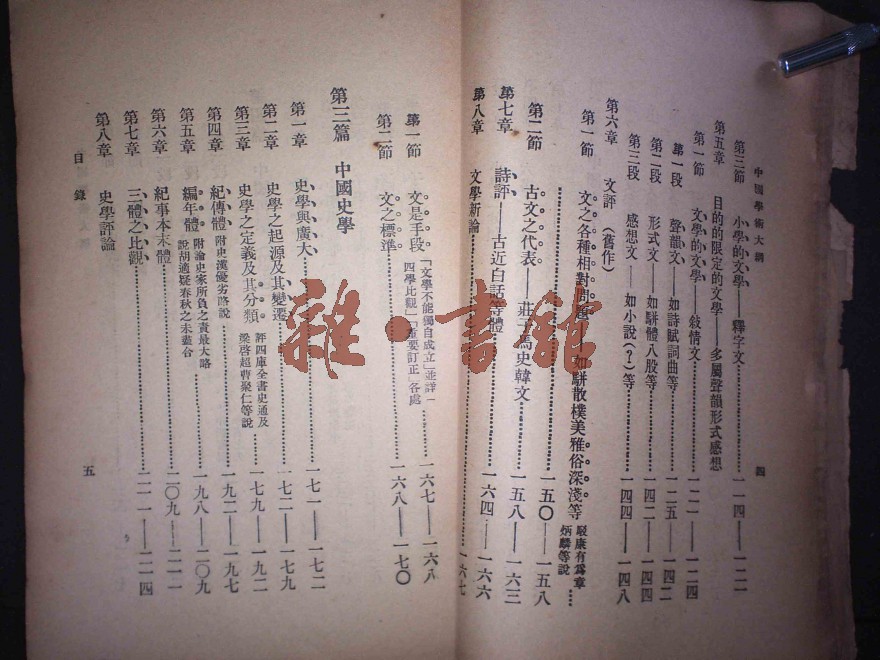 中國學術大綱
四
第三節 小學的文學——釋字文……一一四——一二一
第五章 目的的限定的文學——多屬聲韻形式感想
第一節 文學的文學——敍情文……一二一
第一段 聲韻文——如詩賦詞曲等……一二五——一四二
第二段 形式文——如駢體八股等……一四二——一四四
第三段 感想文——如小說（？）等……一四四——一四八
第六章 文評（舊作）
第一節 文之各種相對問題——如駢散樸美雅俗深淺等 駁康有爲章炳麟等說……
……一五〇——一五八
第二節 古文之代表——莊司馬史韓文……一五八——一六三
第七章 詩評——古近白話等體……一六四——一六六
第八章 文學新論……一六七
第一節 文是手段 「文學不能獨自成立」並評「四學比觀」「重要訂正」各處……一六七——一六八
第二節 文之標準……一六八——一七〇
第三篇 中國史學
第一章 史學與廣大……一七一——一七二
第二章 史學之起源及其變遷……一七二——一七九
第三章 史學之定義及其分類 評四庫全書史通及梁啓超曹聚仁等說……一七九——一九二
第四章 紀傳體 附史漢優劣略說……一九二——一九七
第五章 編年體 附論史家所負之責最大略說胡適疑春秋之未盡合……一九八——二〇九
第六章 紀事本末體……二〇九——二一一
第七章 三體之比觀……二一一——二二四
第八章 史學評論
目錄
五
雜·書館